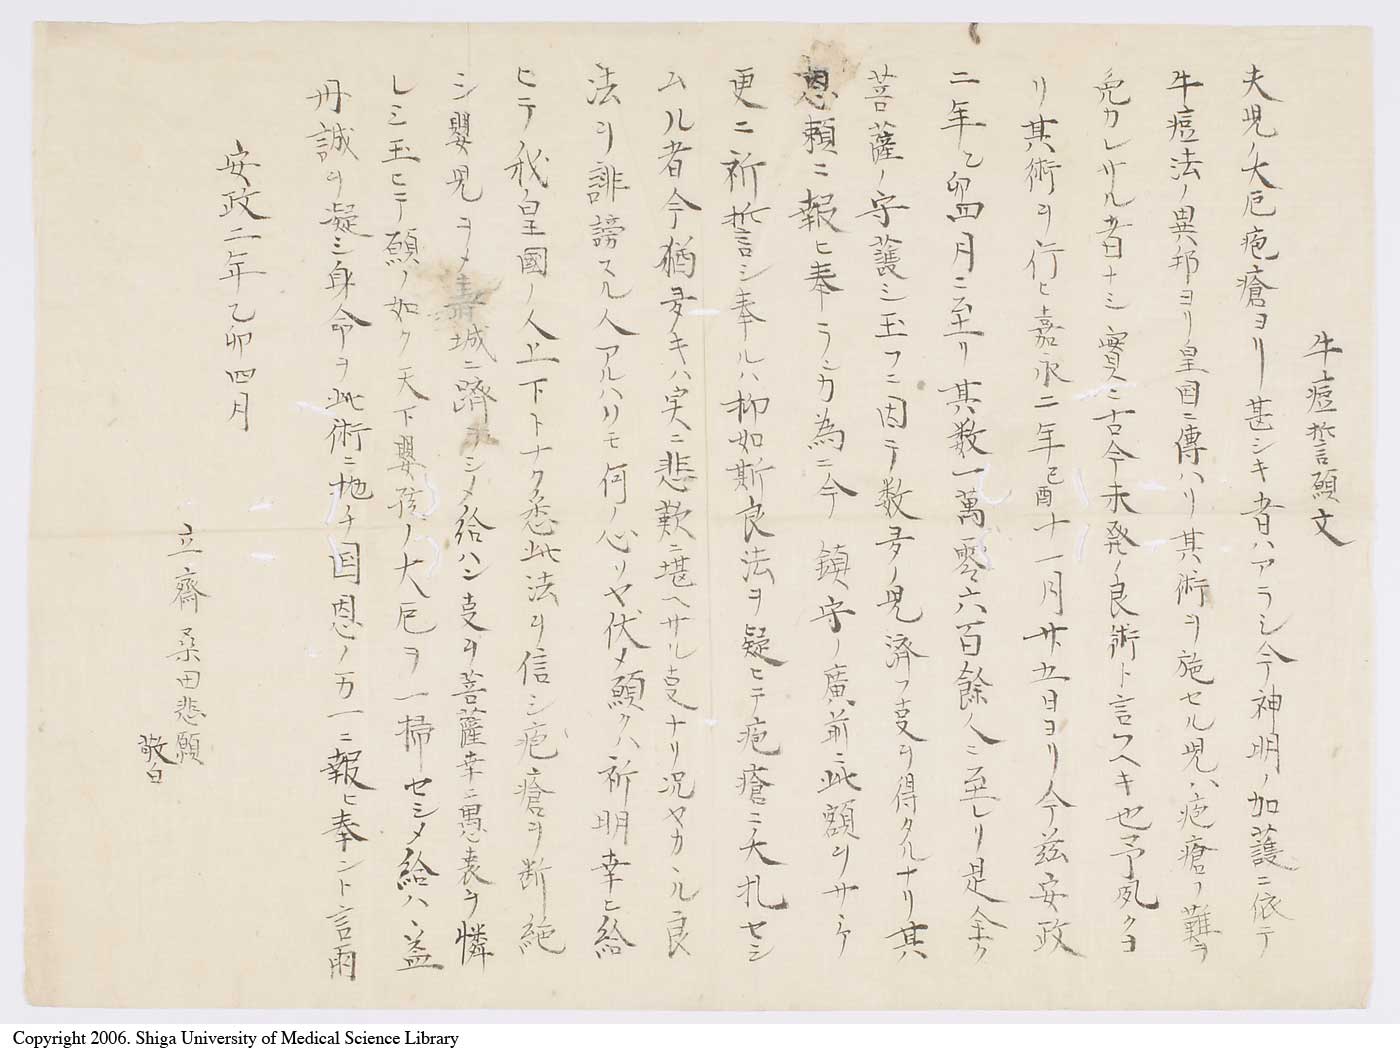 牛痘誓願文
夫児ノ大厄疱瘡ヨリ甚シキ者ハアラシ今神明ノ加護ニ依テ
牛痘法ノ異邦ヨリ皇国ニ傳ハリ其術ヲ施セル児ハ疱瘡ノ難ヲ
免カレサル者ナシ實ニ古今未発ノ良術ト言フヘキ也予夙クヨ
リ其術ヲ行ヒ嘉永二年己酉十一月廿五日ヨリ今茲安政
二年乙卯四月ニ至リ其数一萬零六百餘人ニ至レリ是全ク
菩薩ノ守護シ玉フニ因テ数多ノ児済フ叓ヲ得タルナリ其
恩頼ニ報ヒ奉ラシカ為ニ今 鎮守ノ廣前ニ此額ヲササケ
更ニ祈誓シ奉ルハ抑如斯良法ヲ疑ヒテ疱瘡ニ夭札セシ
ムル者今猶多キハ実ニ悲歎ニ堪ヘサル叓ナリ況ヤカヽル良
法ヲ誹謗スル人アルハリモ何ノ心リヤ伏メ願クハ祈明幸ヒ給
ヒテ我皇國ノ人上下トナク悉此法ヲ信シ疱瘡ヲ断絶
シ嬰児ヲメ寿城ニ躋ラシメ給ハン叓ヲ菩薩幸ニ愚衷ヲ憐
レシ玉ヒテ願ノ如ク天下嬰孩ノ大厄ヲ一掃セシメ給ハヽ益
丹誠ヲ凝ミ身命ヲ此術ニ抛チ国恩ノ万一ニ報ヒ奉ント言爾
安政二年乙卯四月
立齋桑田悲願
敬白
Copyright 2006. Shiga University of Medical Science Library